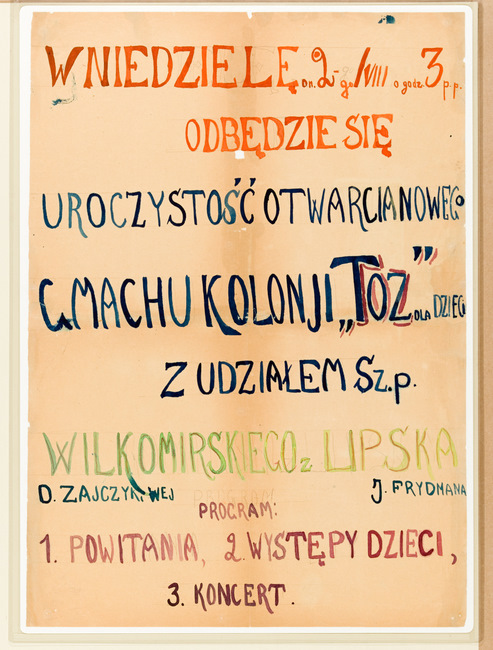 W NIEDZIELĘ Dn. 2-go VIII o godz. 3 p.p.
ODBĘDZIE SIĘ
UROCZYSTOŚĆ OTWARCIA NOWEGO
GMACHU KOLONJI „TOZ” DLA DZIECI
Z UDZIAŁEM Sz.p.
WILKOMIRSKIEGO z LIPSKA
D. ZAJCZYKOWEJ J. FRYDMANA
PROGRAM:
1. POWITANIA, 2. WYSTĘPY DZIECI,
3. KONCERT.